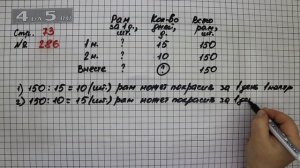 4 а 5 .ru
Стр. 73
№ 286
Рам за 1 д., шт.
Кол-во дней, д.
Всего рам, шт.
1 н. ? 15 150
2 н. ? 10 150
Вместе ? ? 150
1) 150 : 15 = 10 (шт.) рам может покрасить за 1 день 1 маляр
2) 150 : 10 = 15 (шт.) рам может покрасить за 1